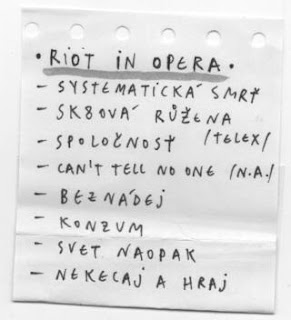 • RIOT IN OPERA •
- SYSTEMATICKÁ SMRŤ
- SK8OVÁ RŮŽENA
- SPOLOČNOSŤ /TELEX/
- CAN'T TELL NO ONE /N.A./
- BEZNÁDEJ
- KONZUM
- SVET NAOPAK
- NEKECAJ A HRAJ